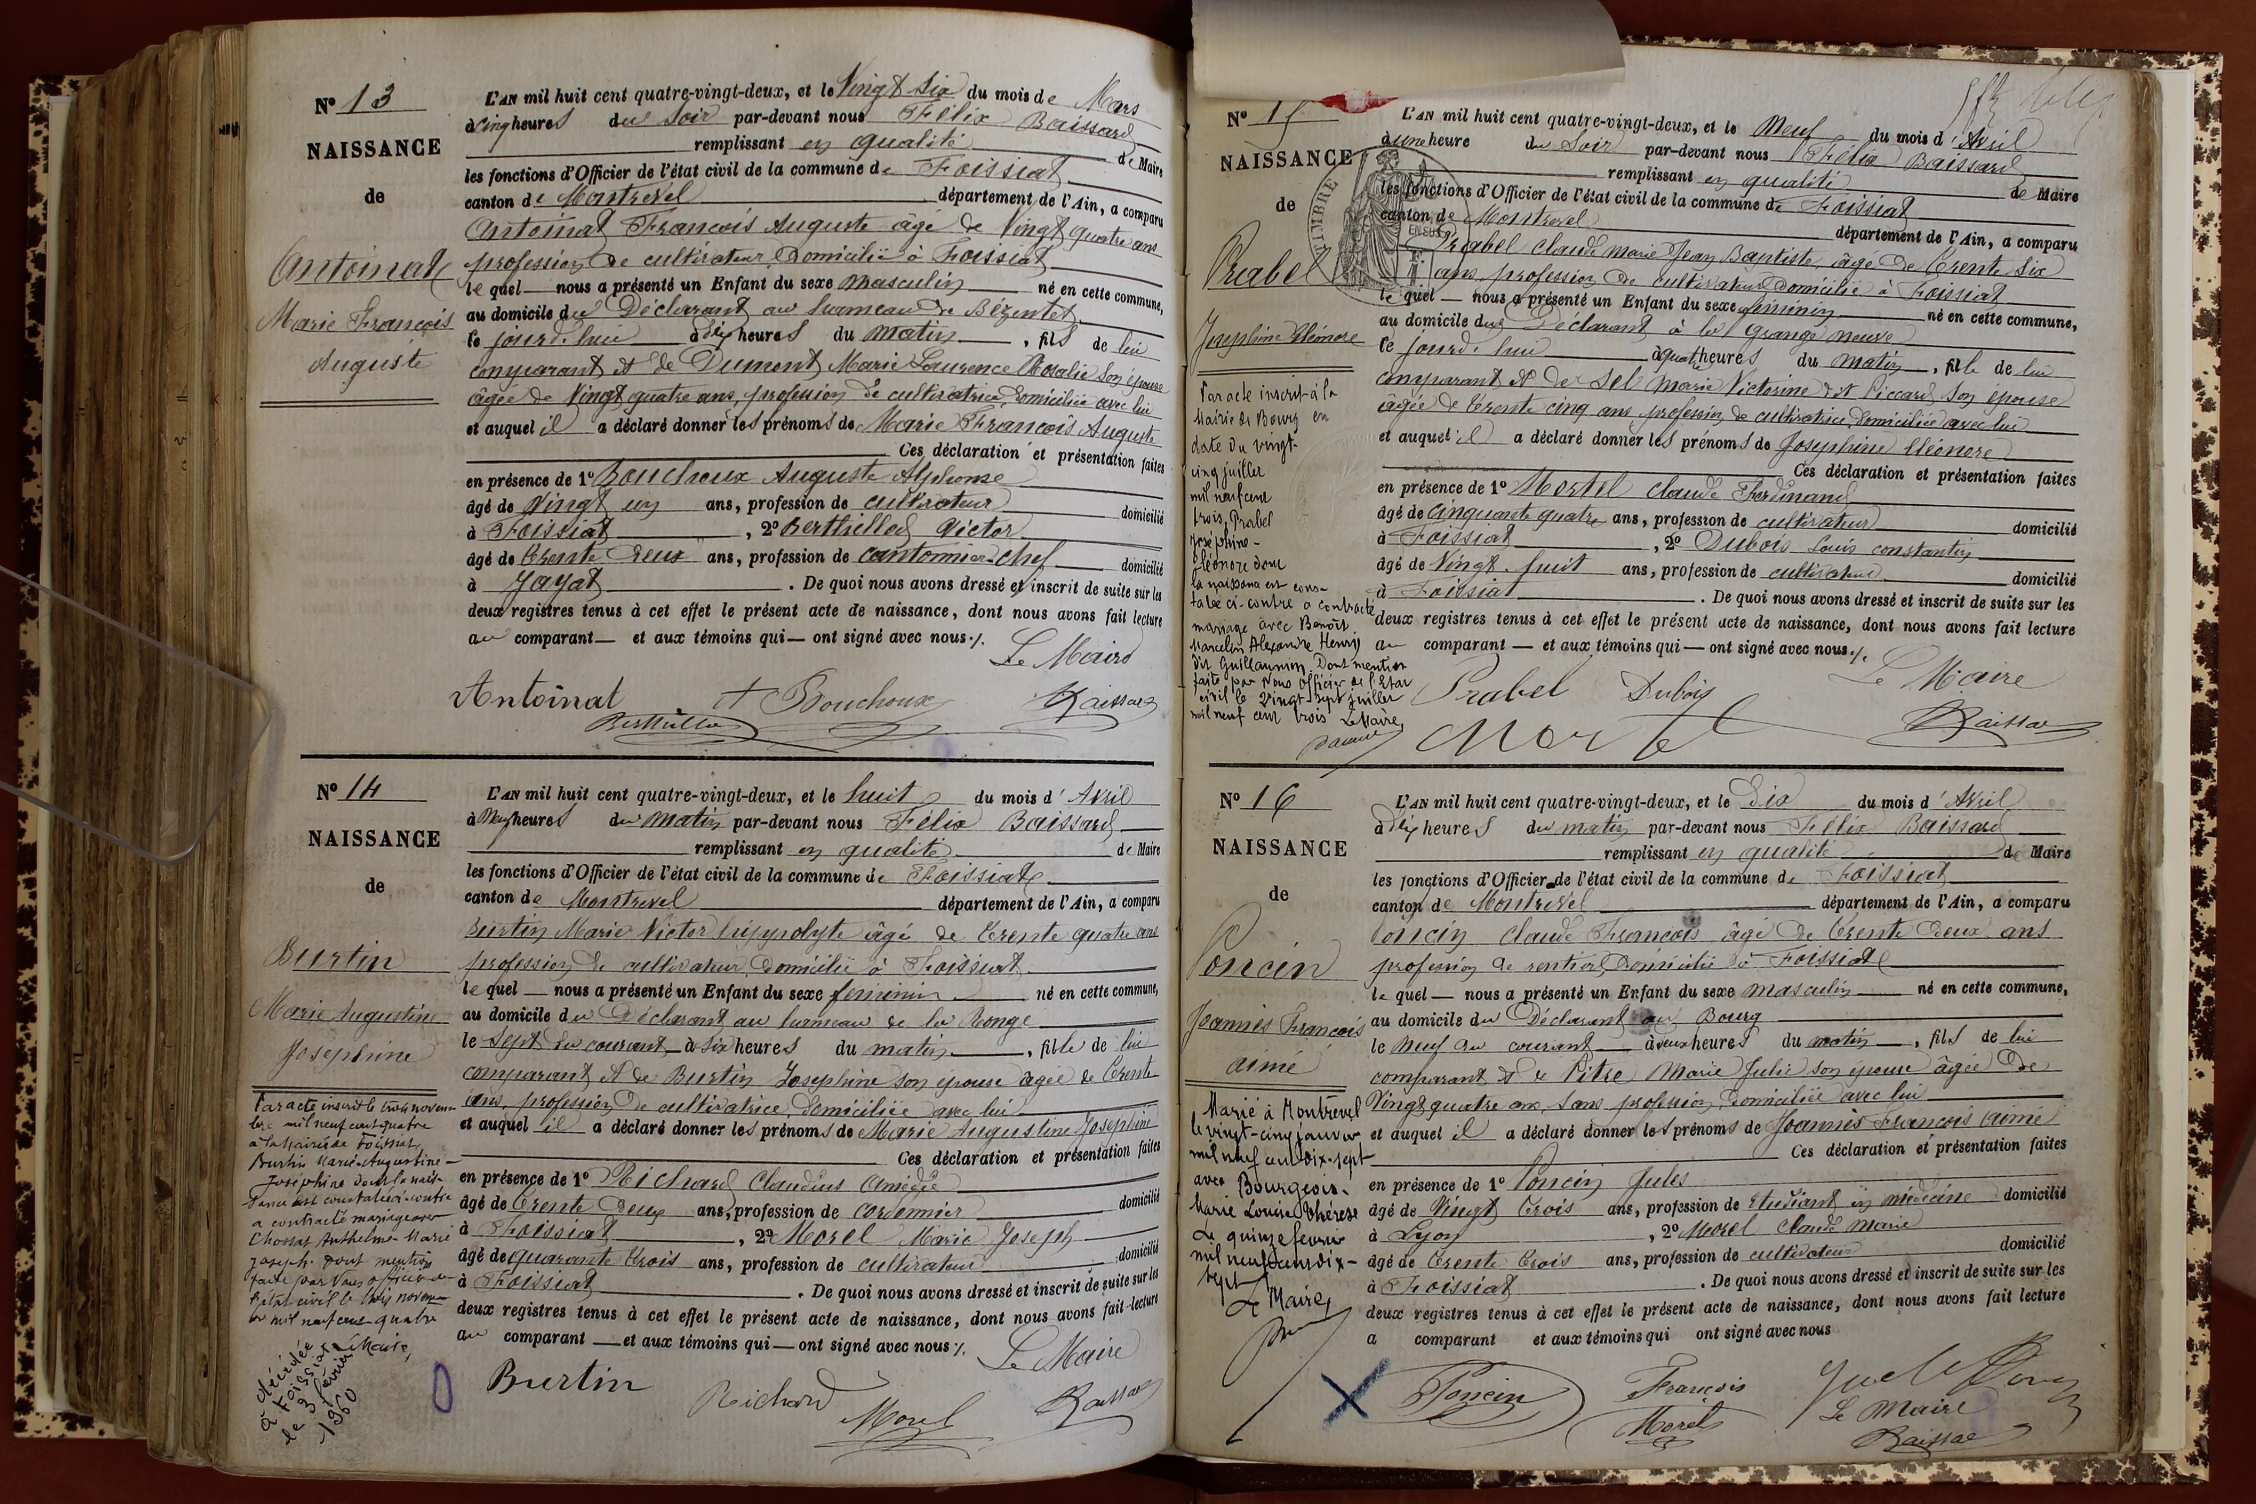 No 13
NAISSANCE
de
Antoinat
Marie François
Auguste
L'AN mil huit cent quatre-vingt-deux, et le Vingt Six du mois de Mars
à cinq heures du Soir par-devant nous Félix Baissard
remplissant en qualité de Maire
les fonctions d'Officier de l'état civil de la commune de Foissiat
canton de Montrevel département de l'Ain, a comparu
Antoinat François Auguste âgé de Vingt quatre ans
profession de cultivateur Domicilié à Foissiat
le quel nous a présenté un Enfant du sexe masculin né en cette commune,
au domicile du Déclarant au hameau de Bézentet
ce jourd'hui à dix heures du matin, fils de lui
comparant et de Dumont Marie Laurence Rosalie Son épouse
âgée de Vingt quatre ans, profession de cultivatrice, Domiciliée avec lui
et auquel il a déclaré donner les prénoms de Marie François Auguste
Ces déclaration et présentation faites
en présence de 1º Bouchoux Auguste Alphonse
âgé de Vingt un ans, profession de cultivateur domicilié
à Foissiat, 2º Berthillod Victor
âgé de Trente Deux ans, profession de cantonnier-chef domicilié
à Jayat. De quoi nous avons dressé et inscrit de suite sur les
deux registres tenus à cet effet le présent acte de naissance, dont nous avons fait lecture
au comparant — et aux témoins qui — ont signé avec nous ./.
Le Maire
Antoinat A Bouchoux Baissard
Berthillod
No 14
NAISSANCE
de
Burtin
Marie Augustine
Joséphine
Par acte inscrit le trois novem-
bre mil neuf cent quatre
à la Mairie de Foissiat
Burtin Marie-Augustine-
Joséphine dont la nais-
sance est constatée ci-contre
a contracté mariage avec
Chossat Anthelme Marie
Joseph. Dont mention
faite par Nous officier de
l'état civil le trois novem-
bre mil neuf cent quatre
Le Maire,
décédée
à Foissiat
le 3 février
1960
L'AN mil huit cent quatre-vingt-deux, et le huit du mois d'Avril
à Neuf heures du matin par-devant nous Félix Baissard
remplissant en qualité de Maire
les fonctions d'Officier de l'état civil de la commune de Foissiat
canton de Montrevel département de l'Ain, a comparu
Burtin Marie Victor hippolyte âgé de Trente quatre ans
profession de cultivateur, Domicilié à Foissiat
le quel — nous a présenté un Enfant du sexe féminin né en cette commune,
au domicile du Déclarant au hameau de la Ronge
le Sept du courant à six heures du matin, fille de lui
comparant et de Burtin Josephine son épouse âgée de Trente
ans, profession de cultivatrice, Domiciliée avec lui
et auquel il a déclaré donner les prénoms de Marie Augustine Josephine
Ces déclaration et présentation faites
en présence de 1º Richard Claudius Amédé
âgé de Trente Deux ans, profession de cordonnier domicilié
à Foissiat, 2º Morel Marie Joseph
âgé de quarante Trois ans, profession de cultivateur domicilié
à Foissiat. De quoi nous avons dressé et inscrit de suite sur les
deux registres tenus à cet effet le présent acte de naissance, dont nous avons fait lecture
au comparant — et aux témoins qui — ont signé avec nous ./.
Le Maire
Burtin Richard Morel Baissard
No 15
NAISSANCE
de
Prabel
Joséphine Eléonore
Par acte inscrit à la
Mairie de Bourg en
date du vingt-
cinq juillet
mil neuf cent
trois, Prabel
Joséphine-
Eléonore dont
la naissance est cons-
tatée ci-contre a contracté
mariage avec Benoît
Marcelin Alexandre Henry
dit Guillaumin. Dont mention
faite par Nous Officier de l'Etat
civil le vingt-sept juillet
mil neuf cent trois Le Maire,
TIMBRE
L'AN mil huit cent quatre-vingt-deux, et le Neuf du mois d'Avril
à une heure du Soir par-devant nous Félix Baissard
remplissant en qualité de Maire
les fonctions d'Officier de l'état civil de la commune de Foissiat
canton de Montrevel département de l'Ain, a comparu
Prabel Claude Marie Jean Baptiste, âgé de Trente Six
ans, profession de cultivateur domicilié à Foissiat
le quel — nous a présenté un Enfant du sexe féminin né en cette commune,
au domicile du Déclarant à la Grange neuve
ce jourd'hui à quatre heures du matin, fille de lui
comparant et de Sel Marie Victorine dit Piccard Son épouse
âgée de Trente cinq ans profession de cultivatrice, Domiciliée avec lui
et auquel il a déclaré donner les prénoms de Josephine Eléonore
Ces déclaration et présentation faites
en présence de 1º Mortel Claude Ferdinand
âgé de Cinquante quatre ans, profession de cultivateur domicilié
à Foissiat, 2º Dubois Louis constantin
âgé de Vingt-huit ans, profession de cultivateur domicilié
à Foissiat. De quoi nous avons dressé et inscrit de suite sur les
deux registres tenus à cet effet le présent acte de naissance, dont nous avons fait lecture
au comparant — et aux témoins qui — ont signé avec nous ./.
Le Maire
Prabel Dubois
Mortel Baissard
No 16
NAISSANCE
de
Poncin
Joannès François
aimé
Marié à Montrevel
le vingt-cinq janvier
mil neuf cent dix-sept
avec Bourgeois-
Marie Louise Thérèse
Le quinze février
mil neuf cent dix-
sept
Le Maire,
L'AN mil huit cent quatre-vingt-deux, et le Dix du mois d'Avril
à dix heures du matin par-devant nous Félix Baissard
remplissant en qualité de Maire
les fonctions d'Officier de l'état civil de la commune de Foissiat
canton de Montrevel département de l'Ain, a comparu
Poncin Claude François âgé de Trente Deux ans
profession de rentier, Domicilié à Foissiat
le quel — nous a présenté un Enfant du sexe masculin né en cette commune,
au domicile du Déclarant au Bourg
le Neuf du courant à deux heures du matin, fils de lui
comparant et de Pitre Marie Julie son épouse âgée De
Vingt quatre ans, Sans profession, Domiciliée avec lui
et auquel il a déclaré donner les prénoms de Joannès François aimé
Ces déclaration et présentation faites
en présence de 1º Poncin Jules
âgé de Vingt Trois ans, profession de Etudiant en médecine domicilié
à Lyon, 2º Morel Claude Marie
âgé de Trente Trois ans, profession de cultivateur domicilié
à Foissiat. De quoi nous avons dressé et inscrit de suite sur les
deux registres tenus à cet effet le présent acte de naissance, dont nous avons fait lecture
a comparant et aux témoins qui ont signé avec nous
Poncin François
Morel Le Maire
Baissard